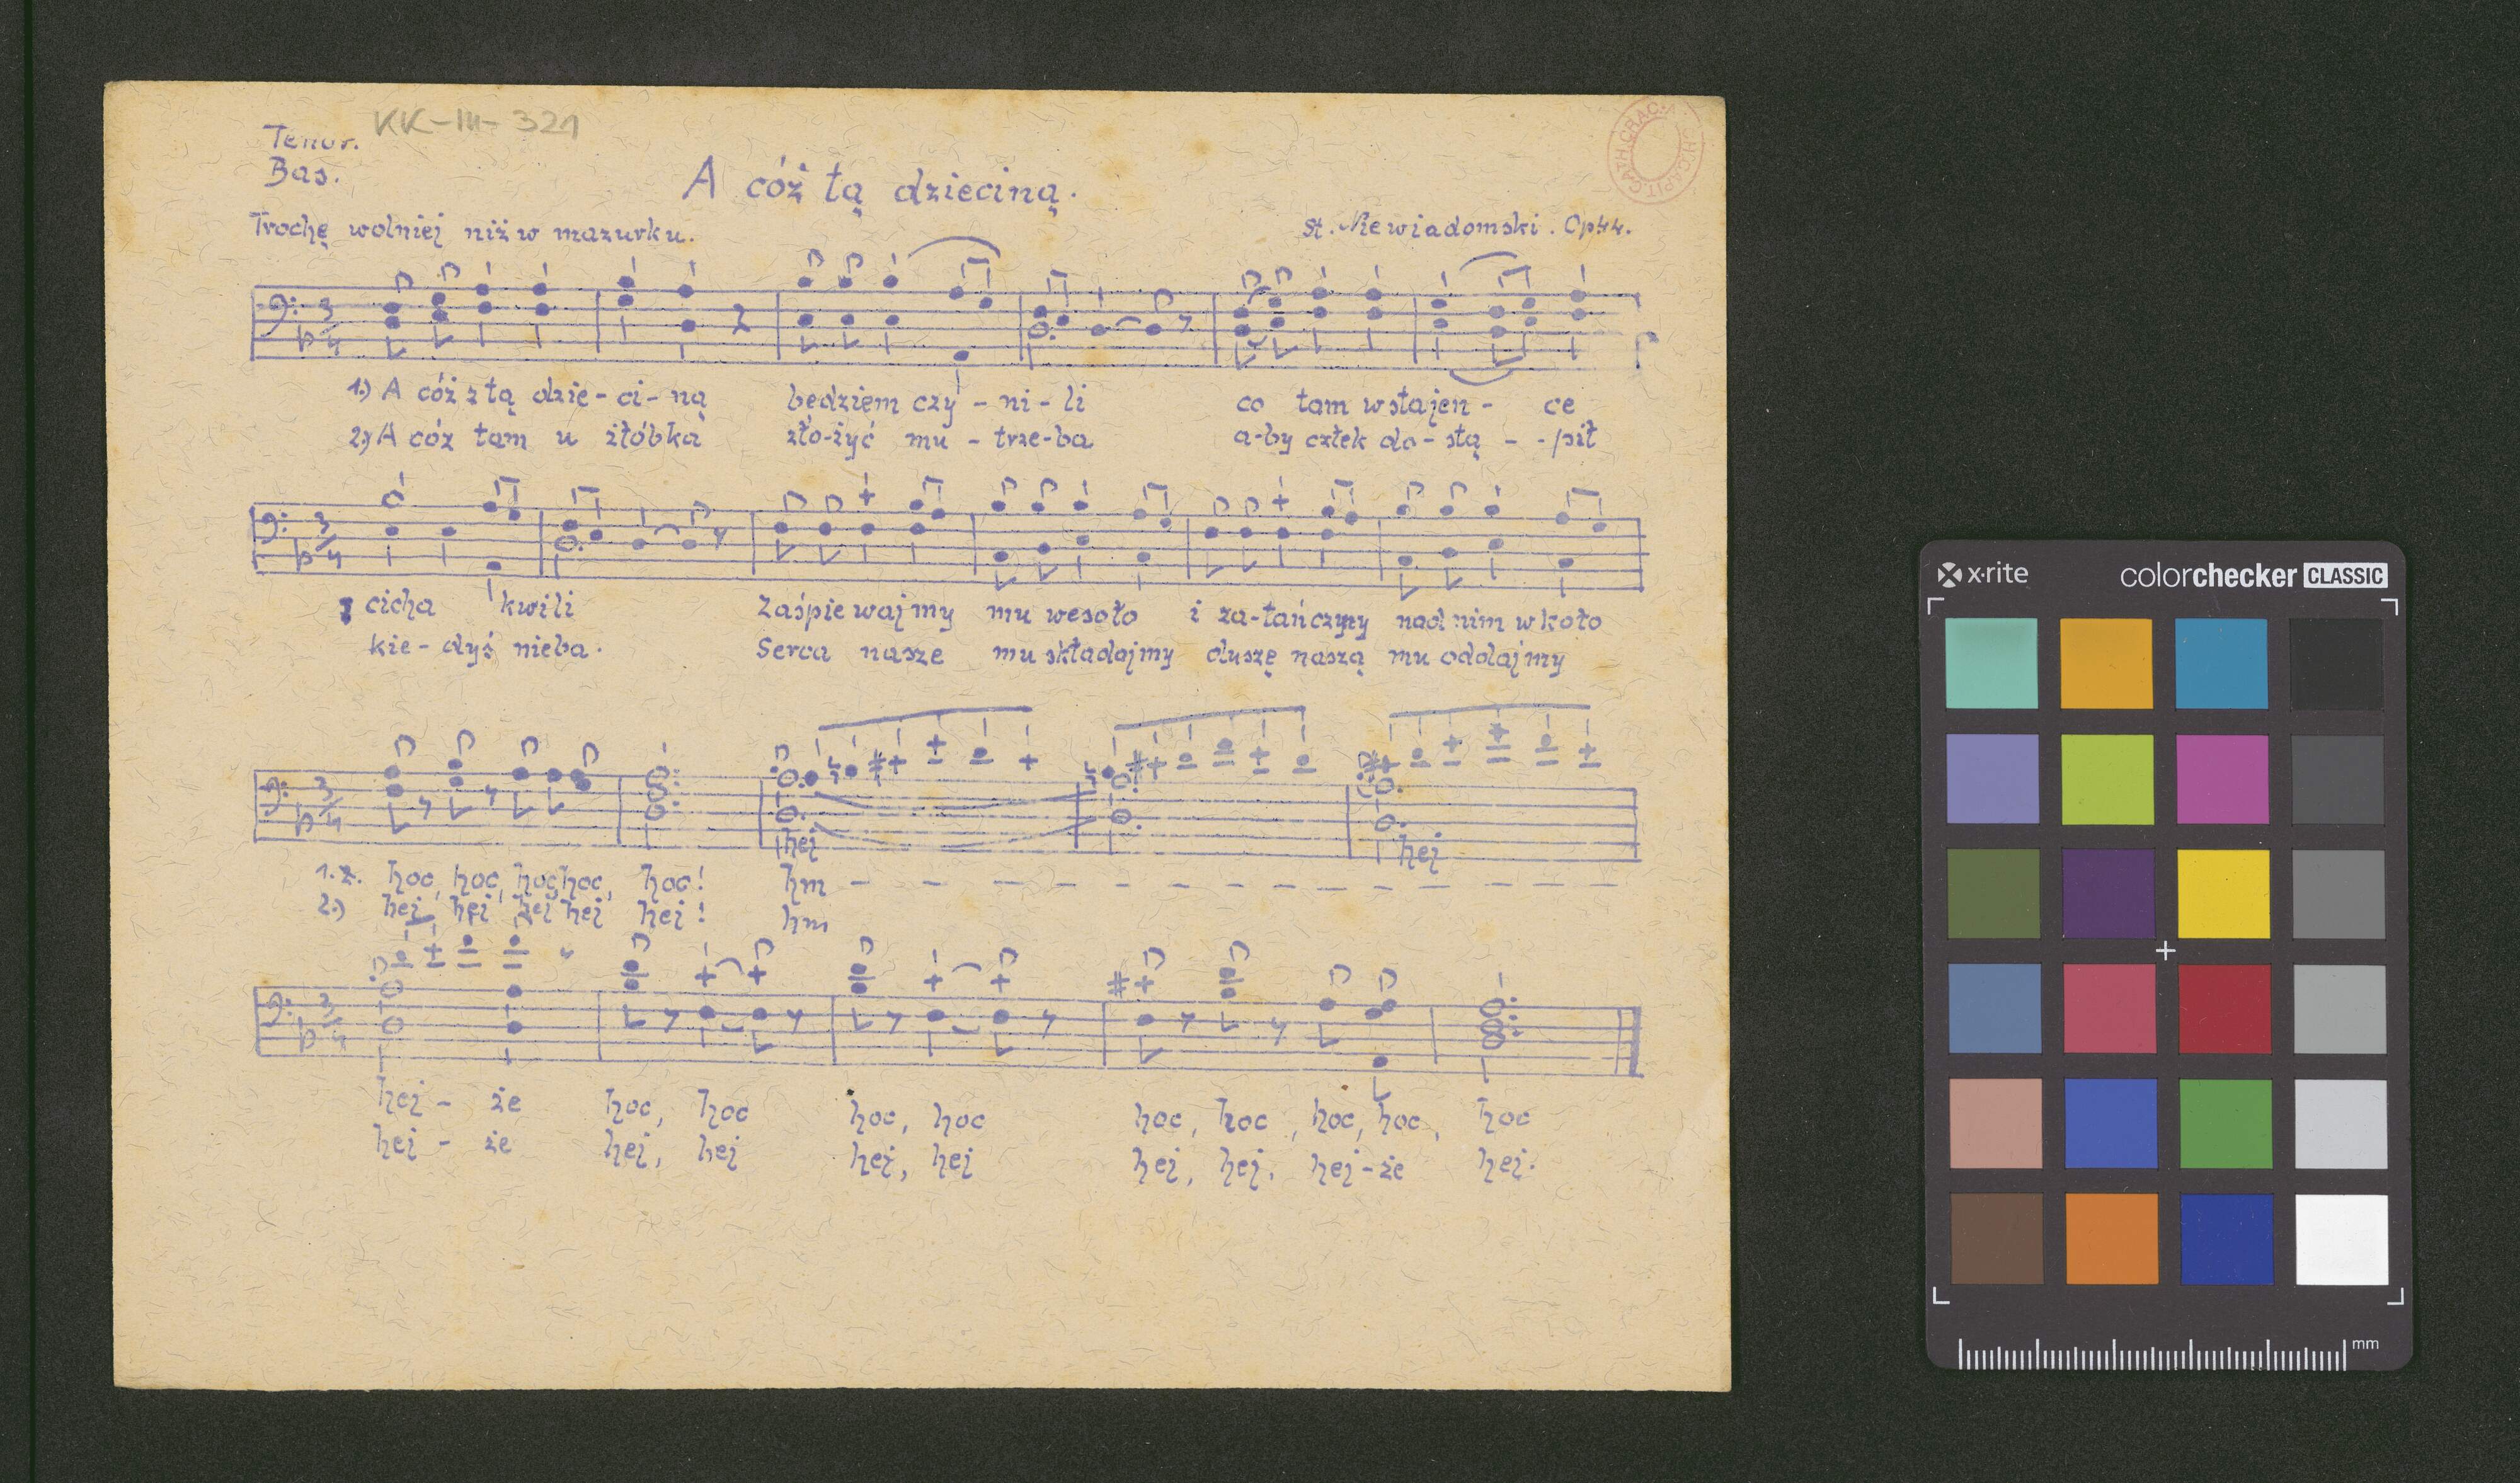 KK-III-321
Tenor.
Bas.
A cóż tą dzieciną.
Trochę wolniej niż w mazurku.
St. Niewiadomski. Op 44.
3/4
1.) A cóż z tą dzie-ci-ną będziem czy-ni-li co tam w stajen-ce
2.) A cóż tam u żłóbka zło-żyć mu-trze-ba a-by człek do-stą--pił
3/4
cicha kwili Zaśpiewajmy mu wesoło i za-tańczymy nad nim w koło
kie-dyś nieba. Serca nasze mu składajmy duszę naszą mu oddajmy
3/4
hej hej
1. hoc, hoc, hoc, hoc, hoc! hm – – – – – – – – – – – – –
2.) hej, hej hej hej hej! hm
3/4
hej-że hoc, hoc hoc, hoc hoc, hoc, hoc, hoc, hoc
hej-że hej, hej hej, hej hej, hej, hej-że hej.
x·rite
colorchecker CLASSIC
mm